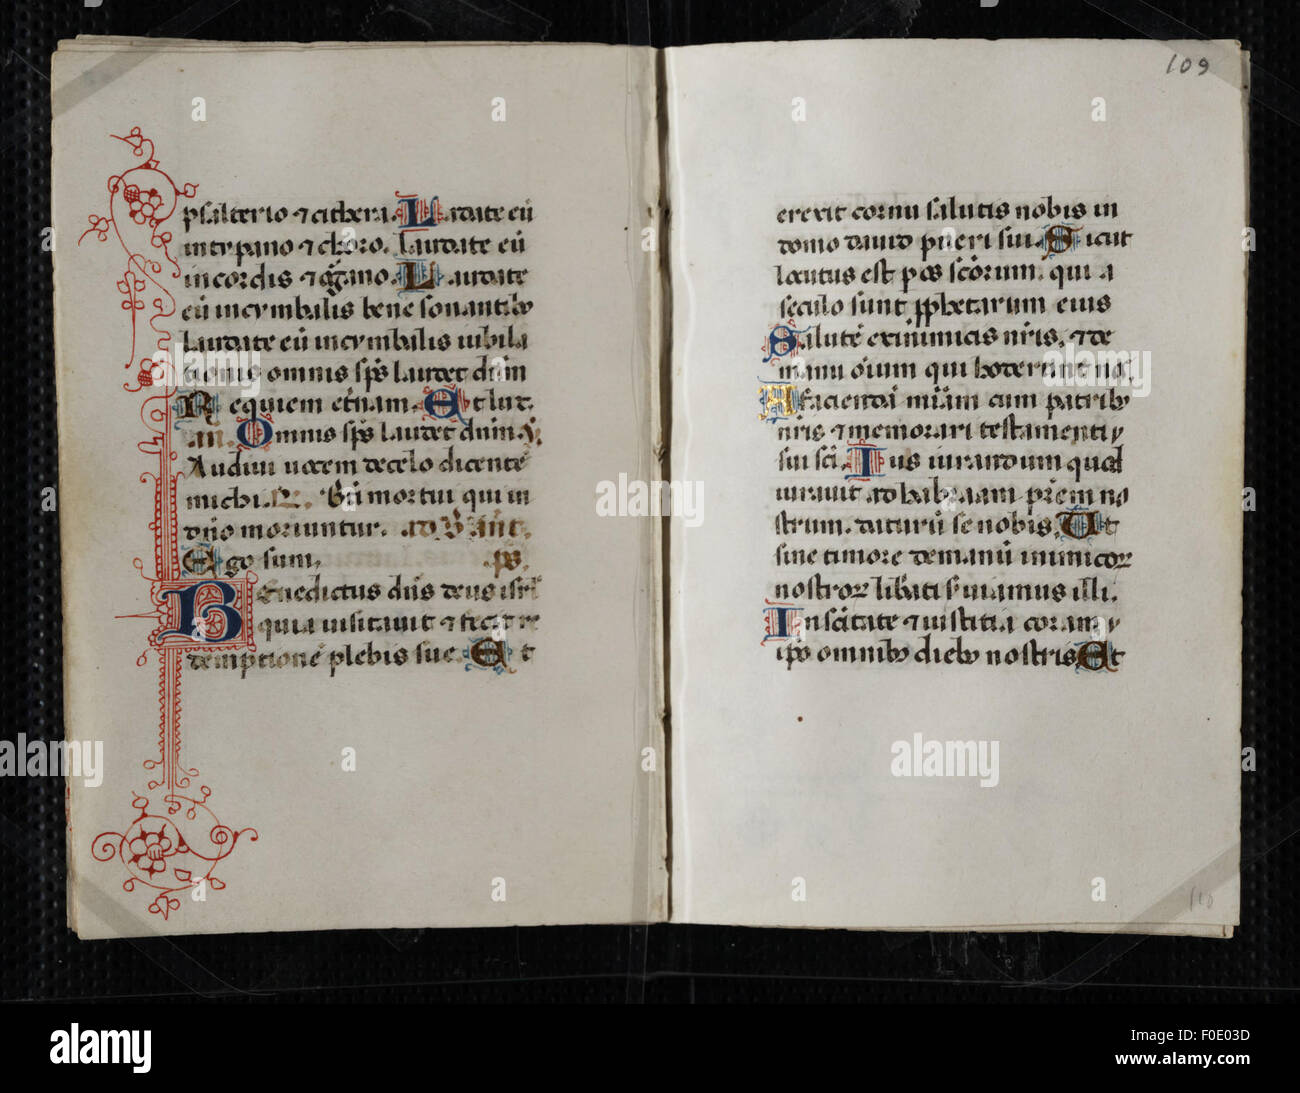 psalterio ⁊ cithera. Laudate eū
in tỹpano ⁊ choro. Laudate eū
in cordis ⁊ ōgano. Laudate
eū in cymbalis bene sonantibꝰ
laudate eū in cymbalis iubila
tionis omnis sp̄s laudet dn̄m
Requiem et̄nam. Et lux.
an. Omnis sp̄s laudet dn̄m. ℣.
Audiui uocem de celo dicentē
michi. ℟. Bt̄i mortui qui in
dn̄o moriuntur. ad Bn̄s. an̄t.
Ego sum. ps.
Benedictus dn̄s deus isrl̄
quia uisitauit ⁊ fecit re
demptionē plebis sue. Et
109
erexit cornu salutis nobis in
domo dauid pueri sui. Sicut
locutus est p os sc̄orum. qui a
seculo sunt ꝓphetarum eius
Salutē ex inimicis nr̄is. ⁊ de
manu oīum qui hoderunt nos.
Ad faciendā mīam cum patribꝰ
nr̄is ⁊ memorari testamenti
sui sc̄i. Ius iurandum quod
iurauit ad habraam pr̄em no
strum. daturū se nobis. Ut
sine timore de manū inimicoꝝ
nostroꝝ lib̄ati s̄uiamus illi.
In sc̄itate ⁊ iustitia coram
ipō omnibꝰ diebꝰ nostris. Et
110
alamy
alamy stock photo
F0E03D
www.alamy.com